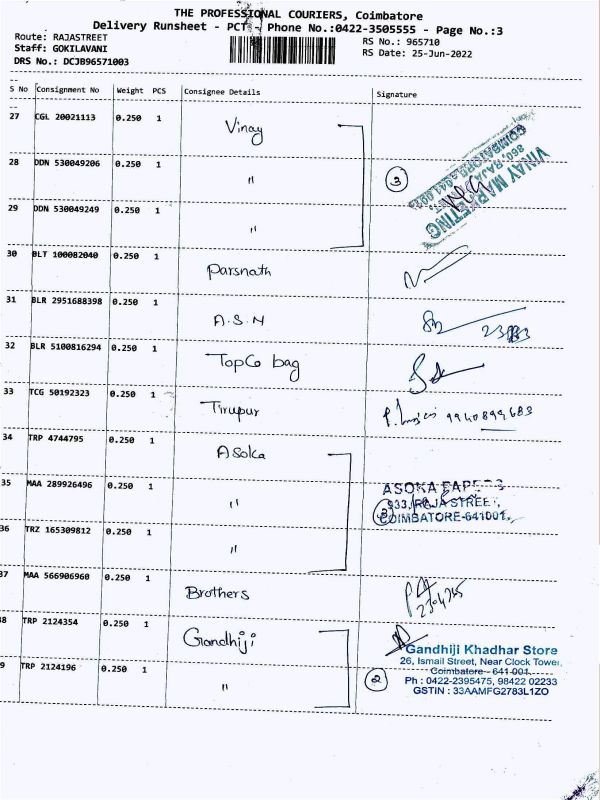 THE PROFESSIONAL COURIERS, Coimbatore
Delivery Runsheet - PCT - Phone No.:0422-3505555 - Page No.:3
Route: RAJASTREET
RS No.: 965710
Staff: GOKILAVANI
RS Date: 25-Jun-2022
DRS No.: DCJB96571003
S No Consignment No Weight PCS Consignee Details Signature
27 CGL 20021113 0.250 1 Vinay
28 DDN 530049206 0.250 1 " 3
VINAY MARKETING
29 DDN 530049249 0.250 1 "
30 BLT 100082040 0.250 1 Parsnath
31 BLR 2951688398 0.250 1 A.S.N
32 BLR 5100816294 0.250 1 TopCo bag
33 TCG 50192323 0.250 1 Tirupur 9940899683
34 TRP 4744795 0.250 1 Asoka
35 MAA 289926496 0.250 1 "
ASOKA
933, RAJA STREET,
COIMBATORE-641001.
36 TRZ 165309812 0.250 1 "
37 MAA 566906960 0.250 1 Brothers
38 TRP 2124354 0.250 1 Gandhiji
Gandhiji Khadhar Store
26, Ismail Street, Near Clock Tower,
Coimbatore - 641 001.
39 TRP 2124196 0.250 1 " 2
Ph : 0422-2395475, 98422 02233
GSTIN : 33AAMFG2783L1ZO